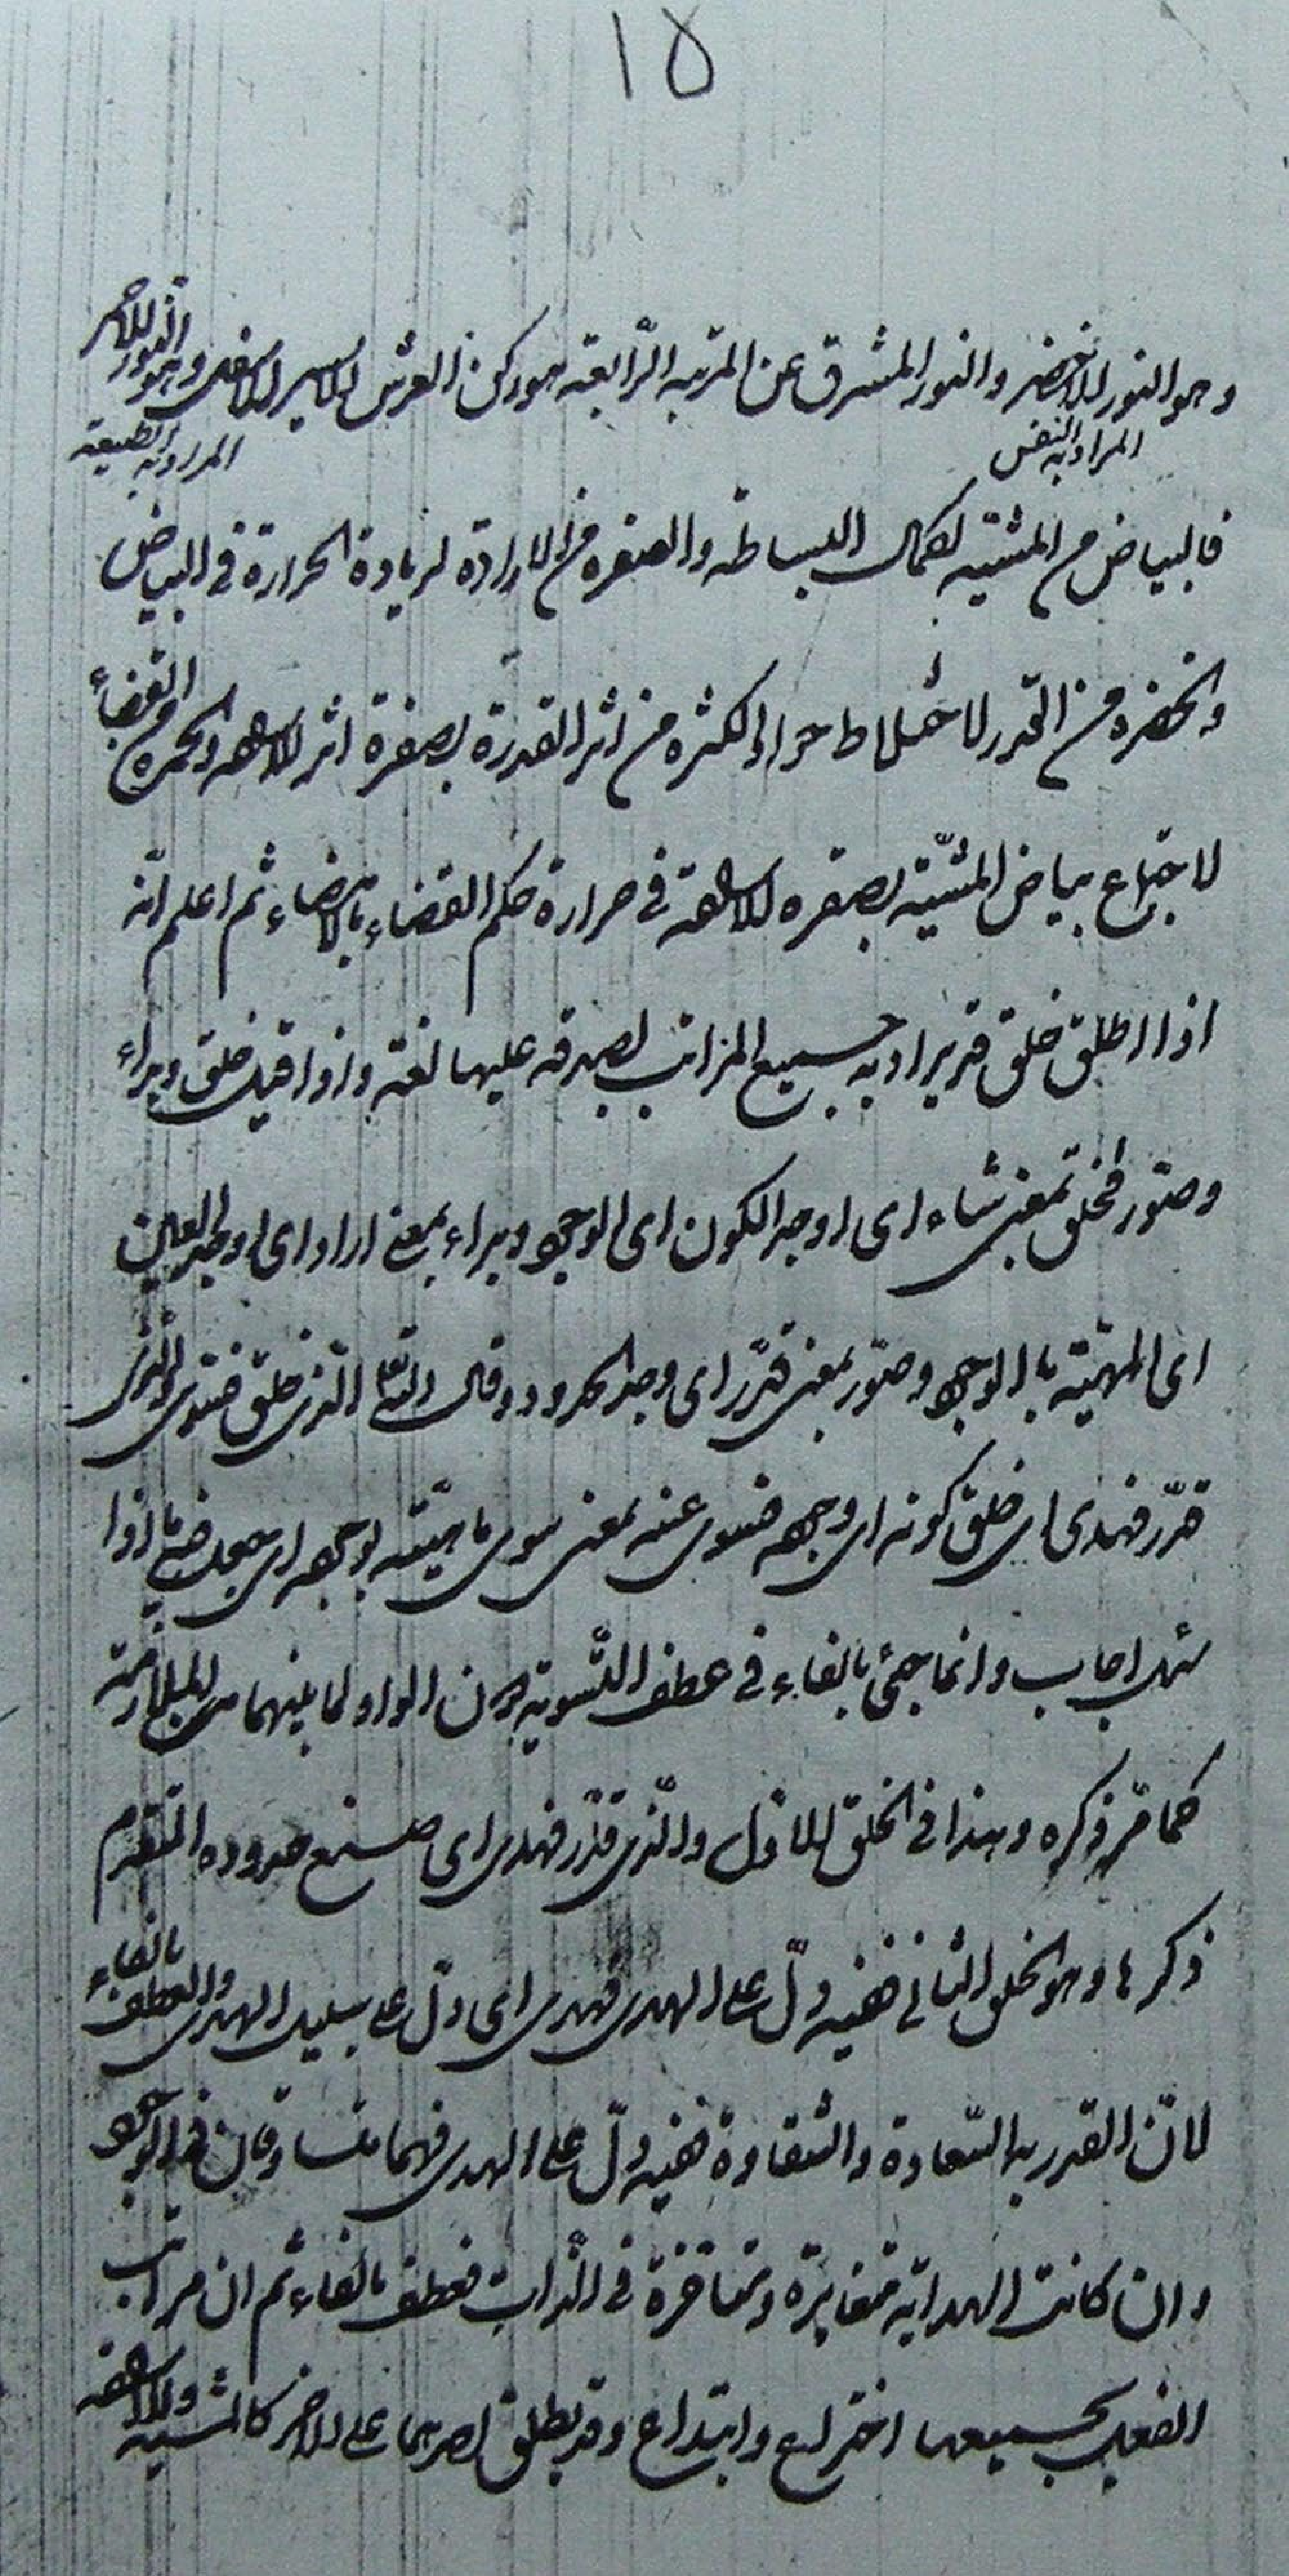 ١٥
وهو النور الاخضر والنور المشرق عن المرتبة الرّابعة هو ركن العرش الايسر الاسفل وهو النور الاحمر
المراد به النفس
المراد به الطبيعة
فالبياض من المشية لكمال البساطة والصفرة من الارادة لزيادة الحرارة في البياض
والخضرة من القدر لاختلاط سواد الكثرة من اثر القدرة بصفرة اثر الارادة والحمرة من القضاء
لاجتماع بياض المشيّة بصفرة الارادة في حرارة حكم القضاء بالامضاء ثم اعلم انّه
اذا اطلق خلق قد يراد به جميع المراتب لصدقه عليها لغة واذا قيل خلق وبراء
وصوّر فخلق بمعنى شاء اي اوجد الكون اي الوجود وبراء بمعنى اراد اي اوجد العين
اي المهيّة بالوجود وصوّر بمعنى قدّر اي وجد الحدود وقال الله تعالى الذي خلق فسوى والذي
قدّر فهدى اي خلق كونه اي وجوده فسوى عينه بمعنى سوى ماهيّته بوجوده اي جعل فيه ما اذا
سئل اجاب وانما جيء بالفاء في عطف التّسوية دون الواو لما بينهما من الملازمة
كما مّر ذكره وهذا في الخلق الاول والّذي قدّر فهدى اي صنع حدوده المتقدم
ذكرها وهو الخلق الثاني ففيه دلّ على الهدى فهدى اي دلّ على سبيل الهدى والعطف بالفاء
لانّ القدر به السّعادة والشقاوة ففيه دلّ على الهدى فهما متساوقان في الوجود
وان كانت الهداية مغايرة ومتاخرة في الذات فعطف بالفاء ثم ان مراتب
الفعل بجميعها اختراع وابتداع وقد يطلق احدهما على الاخر كالمشية والارادة